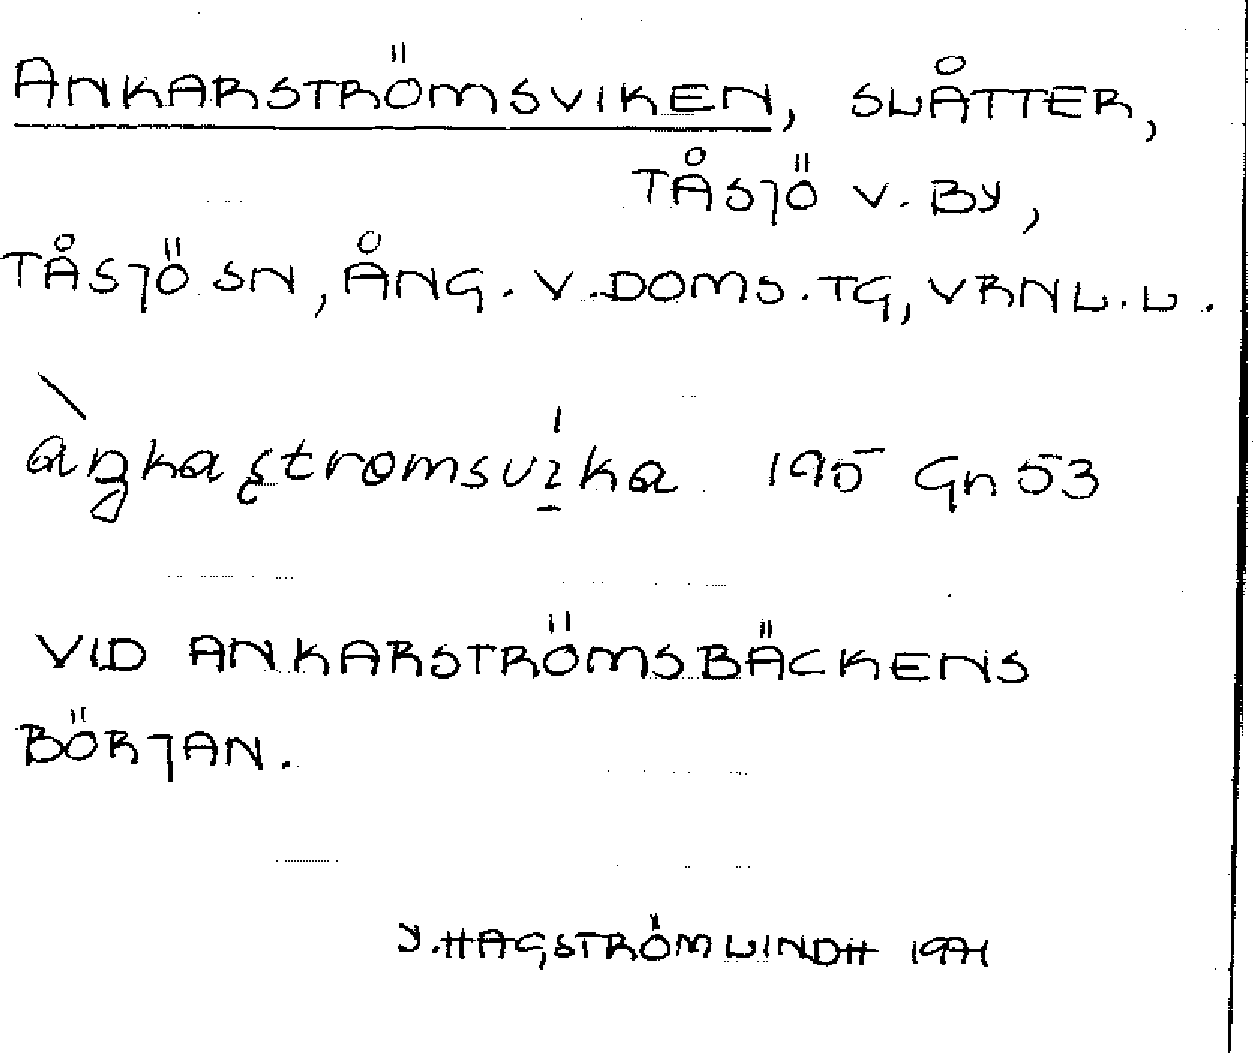 ANKARSTRÖMSVIKEN, SLÅTTER,
TÅSJÖ V. BY,
TÅSJÖ SN, ÅNG. V. DOMS. TG, VRNL. L.
195 Gn 53
VID ANKARSTRÖMSBÄCKENS
BÖRJAN.
Y. HAGSTRÖM LINDH 1971